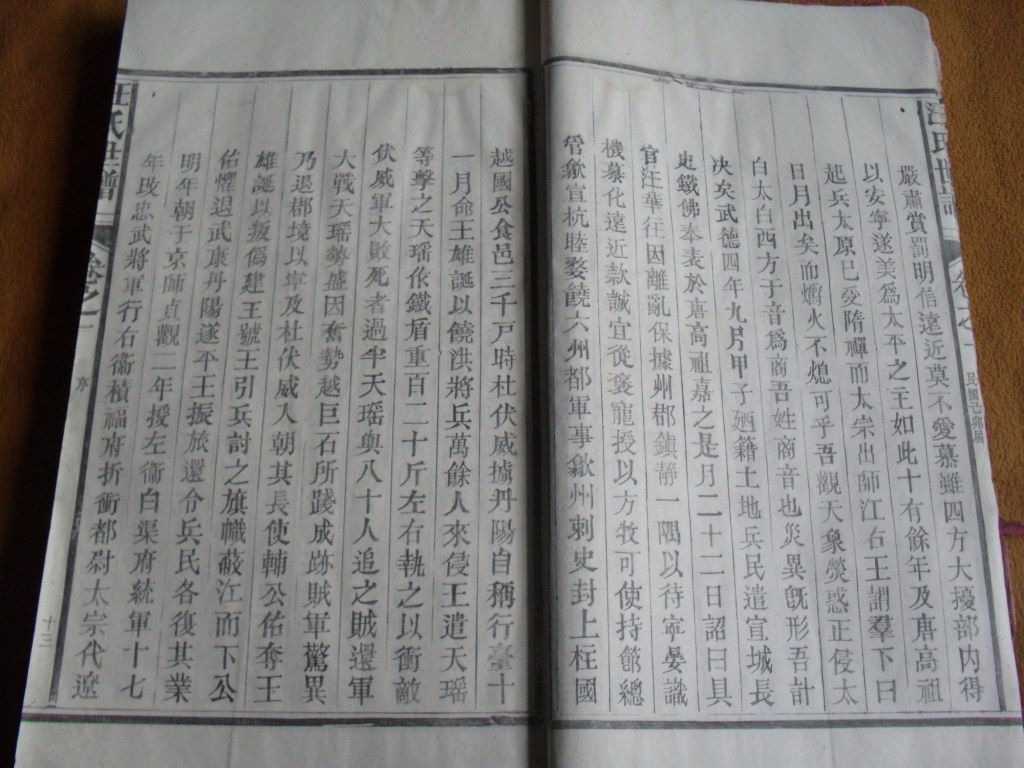 汪氏世譜
卷之一
民國己卯屆
嚴肅賞罰明信遠近莫不愛慕雖四方大擾部內得
以安寧遂美爲太平之王如此十有餘年及唐高祖
起兵太原已受隋禪而太宗出師江右王謂羣下曰
日月出矣而爝火不熄可乎吾觀天象熒惑正侵太
白太白西方于音爲商吾姓商音也災異旣形吾計
决矣武德四年九月甲子廼籍土地兵民遣宣城長
史鐵佛奉表於唐高祖嘉之是月二十二日詔曰具
官汪華往因離亂保據州郡鎮靜一隅以待寧晏識
機慕化遠近款誠宜從褒寵授以方牧可使持節總
管歙宣杭睦婺饒六州都軍事歙州刺史封上柱國
越國公食邑三千戸時杜伏威據丹陽自稱行臺十
一月命王雄誕以饒洪將兵萬餘人來侵王遣天瑤
等擊之天瑤依鐵盾重百二十斤左右執之以衝敵
伏威軍大敗死者過半天瑤與八十人追之賊還軍
大戰天瑤勢盛因奮勢越巨石所踐成跡賊軍驚異
乃退郡境以寧及杜伏威入朝其長使輔公佑奪王
雄誕以叛僞建王號王引兵討之旗幟蔽江而下公
佑懼退武康丹陽遂平王振旅還令兵民各復其業
明年朝于京師貞觀二年授左衞白渠府統軍十七
年改忠武將軍行右衞積福府折衝都尉太宗代遼
汪氏世譜
卷之一
十三